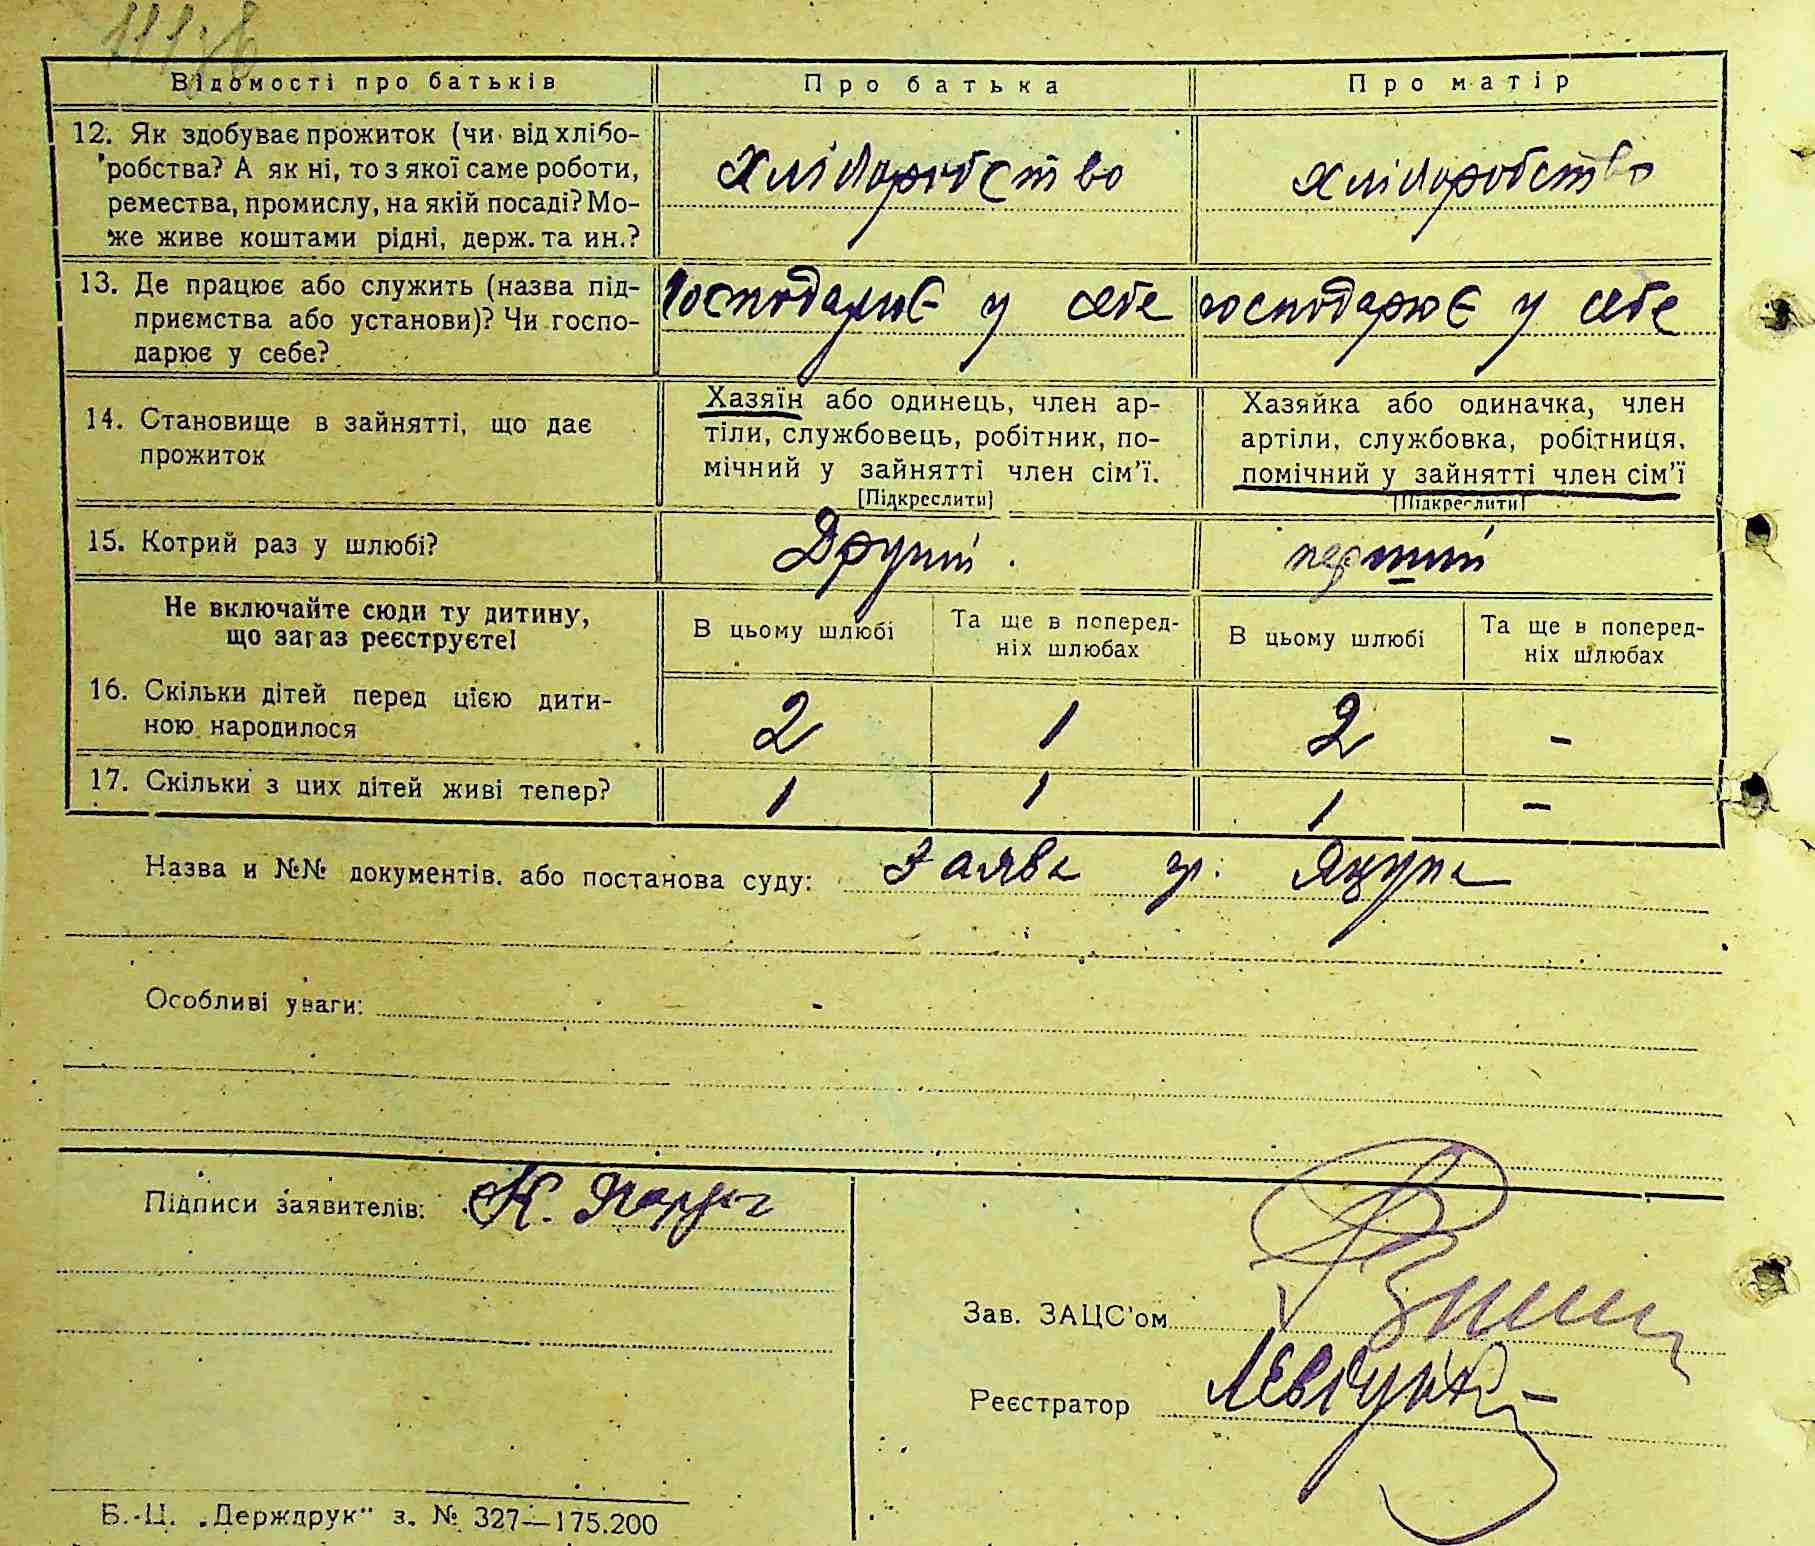 Відомості про батьків Про батька Про матір
12. Як здобуває прожиток (чи від хлібо-
робства? А як ні, то з якої саме роботи,
ремества, промислу, на якій посаді? Мо-
же живе коштами рідні, держ. та ин.?
хліборобство хліборобство
13. Де працює або служить (назва під-
приємства або установи)? Чи госпо-
дарює у себе?
Господарює у себе господарює у себе
14. Становище в зайнятті, що дає
прожиток
Хазяїн або одинець, член ар-
тіли, службовець, робітник, по-
мічний у зайнятті член сім'ї.
[Підкреслити]
Хазяйка або одиначка, член
артіли, службовка, робітниця,
помічний у зайнятті член сім'ї
[Підкреслити]
15. Котрий раз у шлюбі? Другий перший
Не включайте сюди ту дитину,
що зараз реєструєте!
В цьому шлюбі
Та ще в поперед-
ніх шлюбах
В цьому шлюбі
Та ще в поперед-
ніх шлюбах
16. Скільки дітей перед цією дити-
ною народилося
2 1 2 -
17. Скільки з цих дітей живі тепер? 1 1 1 -
Назва и №№ документів. або постанова суду: Заява гр.
Особливі уваги: -
Підписи заявителів: К.
Зав. ЗАЦС'ом
Реєстратор
Б.-Ц. „Держдрук" з. № 327—175.200